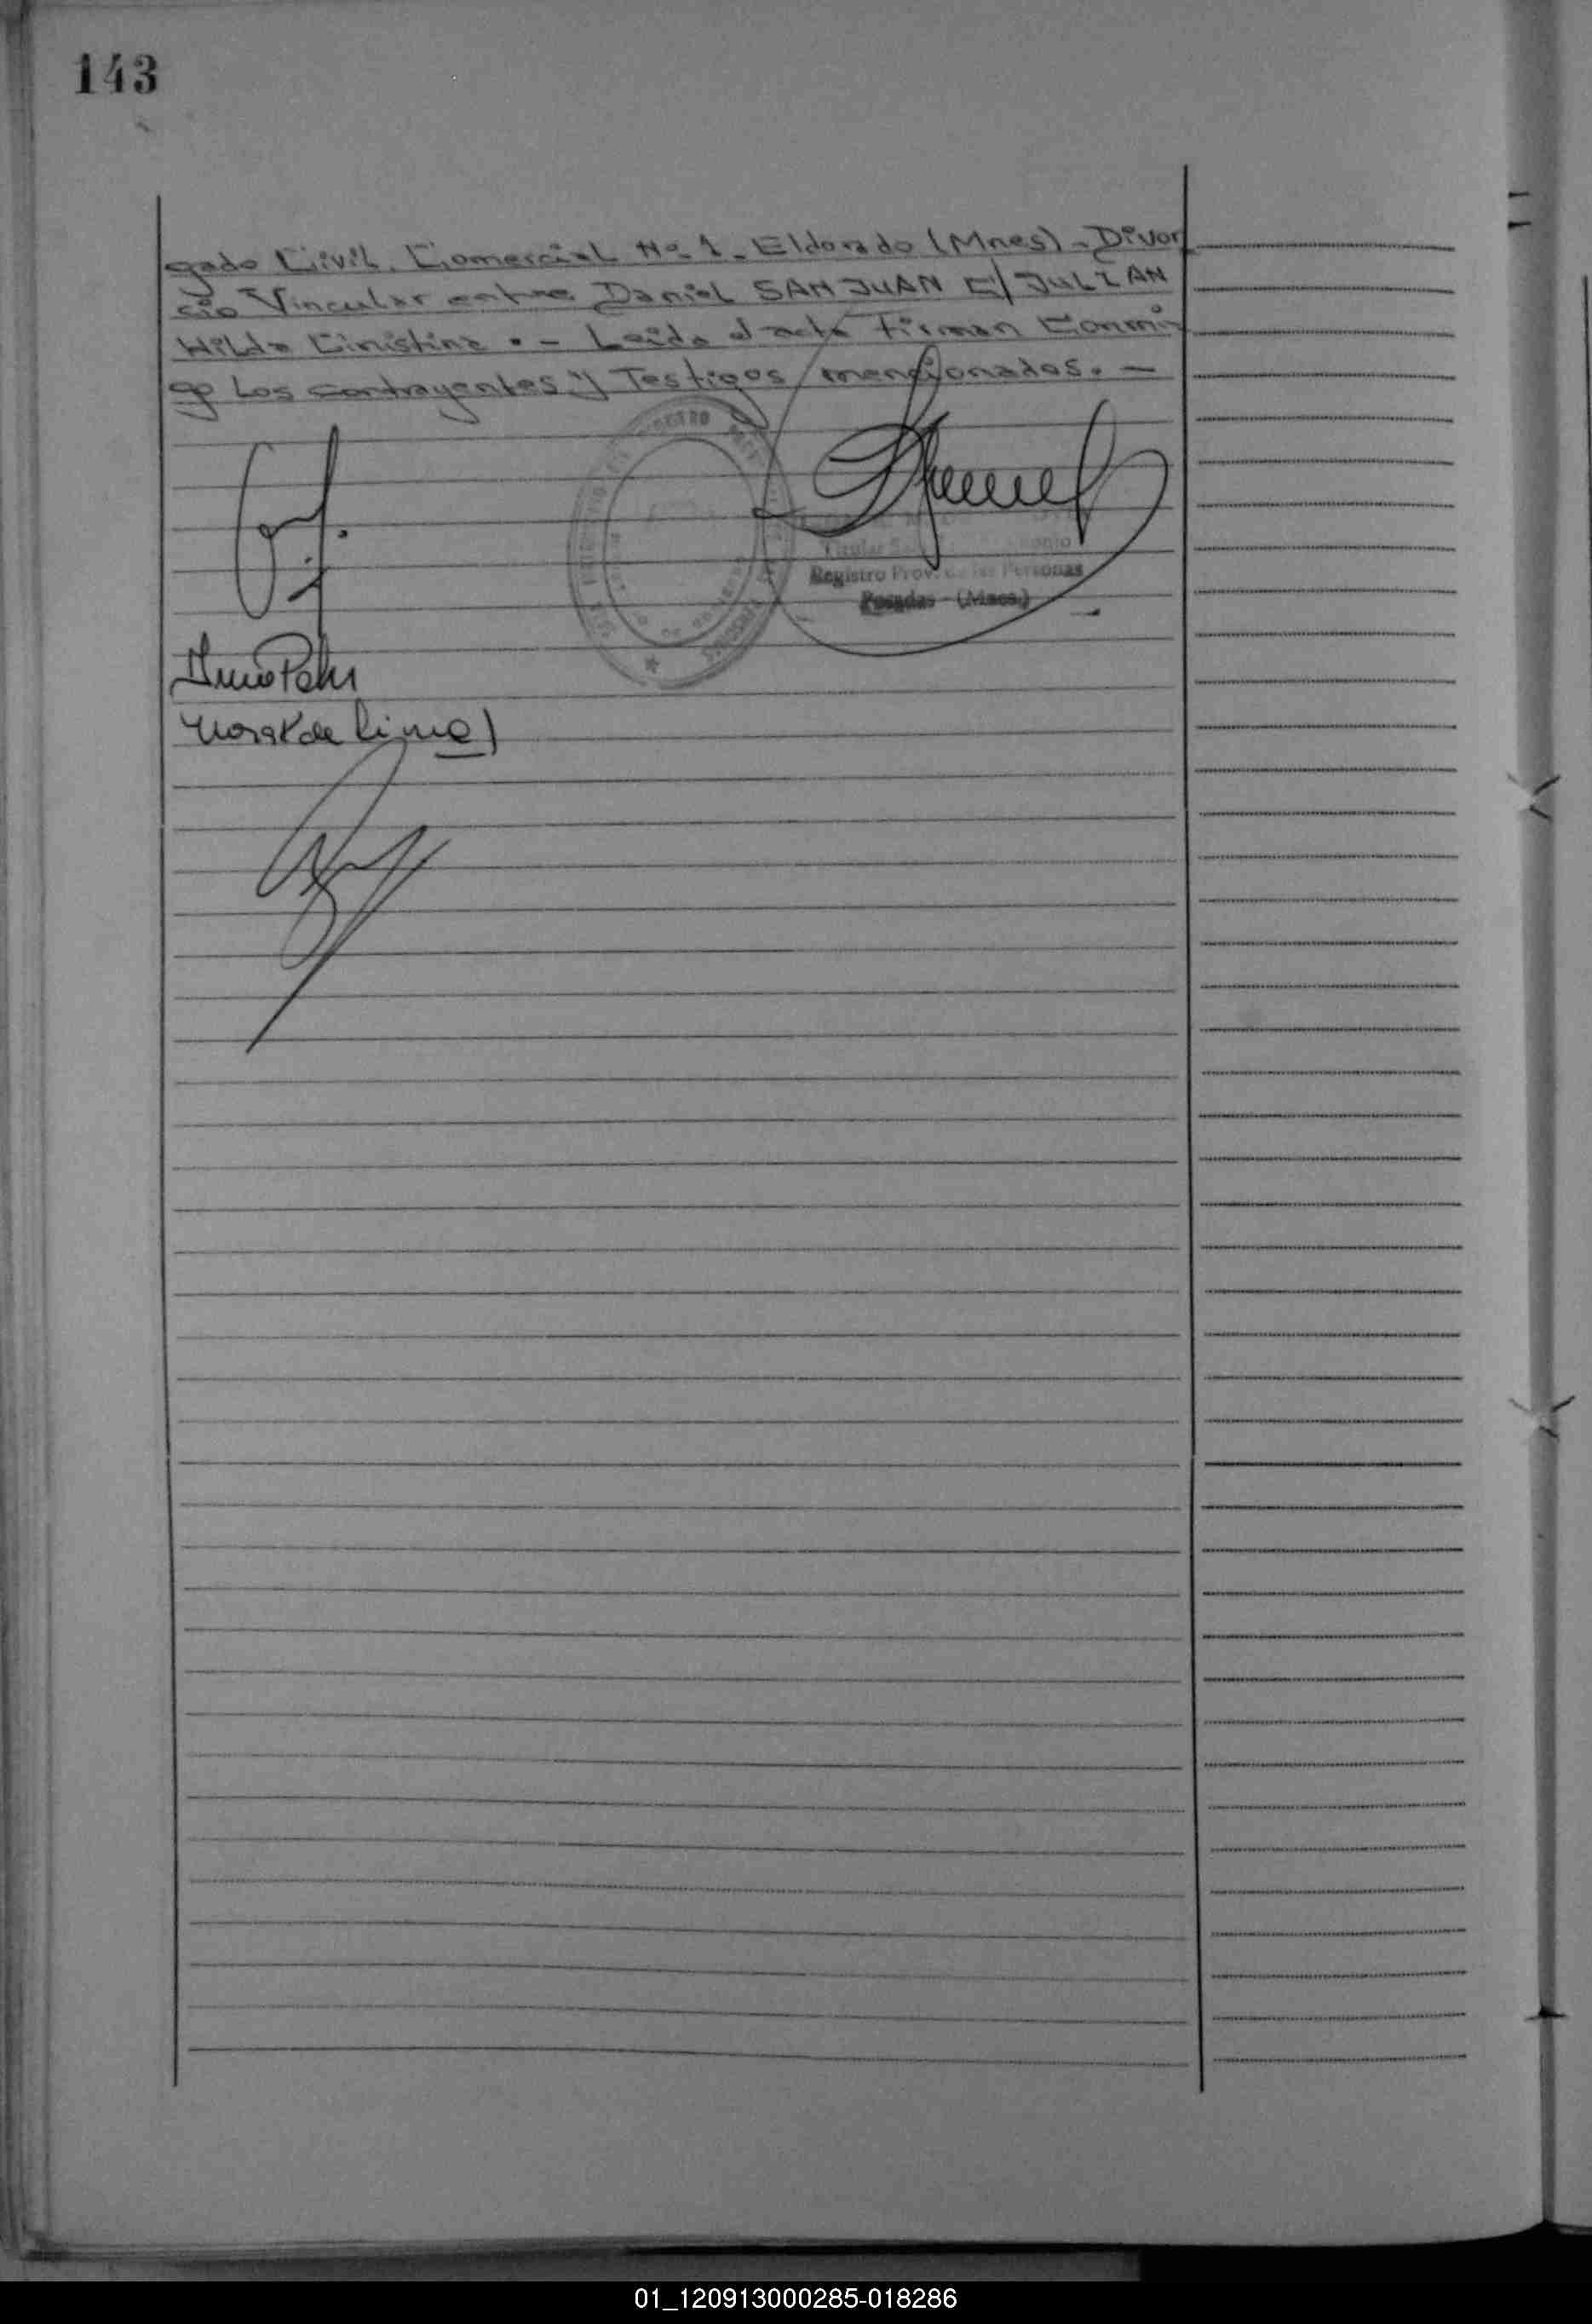 143
gado Civil. Comercial Nº 1. Eldorado (Mnes) - Divor
cio Vincular entre Daniel SAN JUAN C/ JULIAN
Hilda Cristina . - Leída el acta Firman Conmi
go Los contrayentes y Testigos mencionados. -
Titular
Registro Prov. de las Personas
Posadas - (Mnes.)
de Lima
01_120913000285-018286